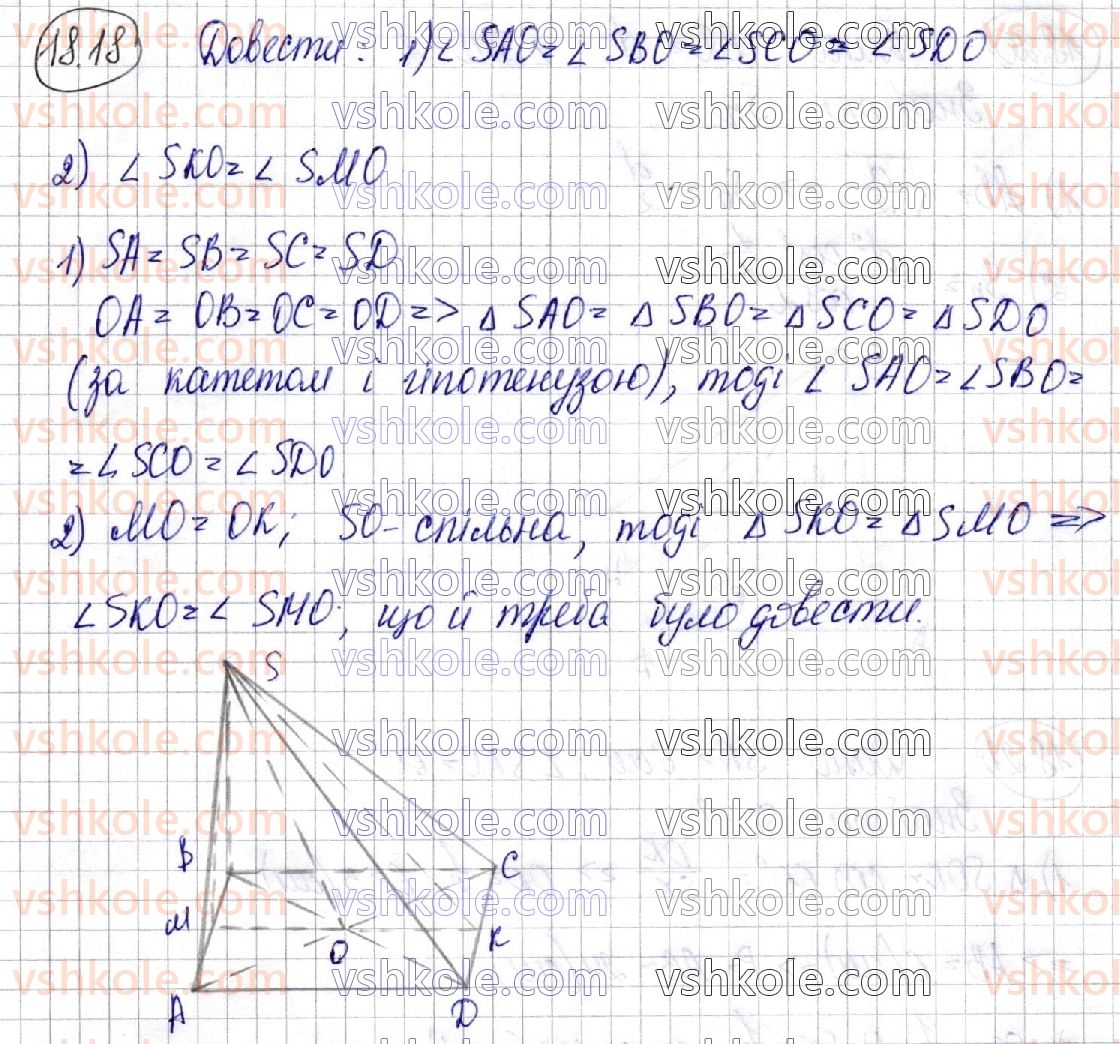 18.18 Довести: 1) ∠ SAO = ∠ SBO = ∠ SCO = ∠ SDO
2) ∠ SKO = ∠ SMO
1) SA = SB = SC = SD
OA = OB = OC = OD => △ SAO = △ SBO = △ SCO = △ SDO
(за катетом і гіпотенузою), тоді ∠ SAO = ∠ SBO =
= ∠ SCO = ∠ SDO
2) MO = OK; SO - спільна, тоді △ SKO = △ SMO =>
∠ SKO = ∠ SMO, що й треба було довести.
S
B C
M O K
A D
vshkole.com